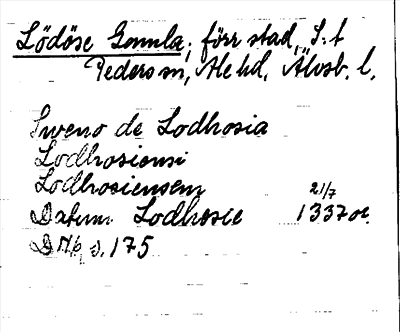 Lödöse Gamla, förr stad, S:t
Peders sn, Ale hd, Älvsb. l.
Sweno de Lodhosia
Lodhosiensi
Lodhosiensem 21/7
Datum Lodhosie 1337 or.
DN 6 s. 175